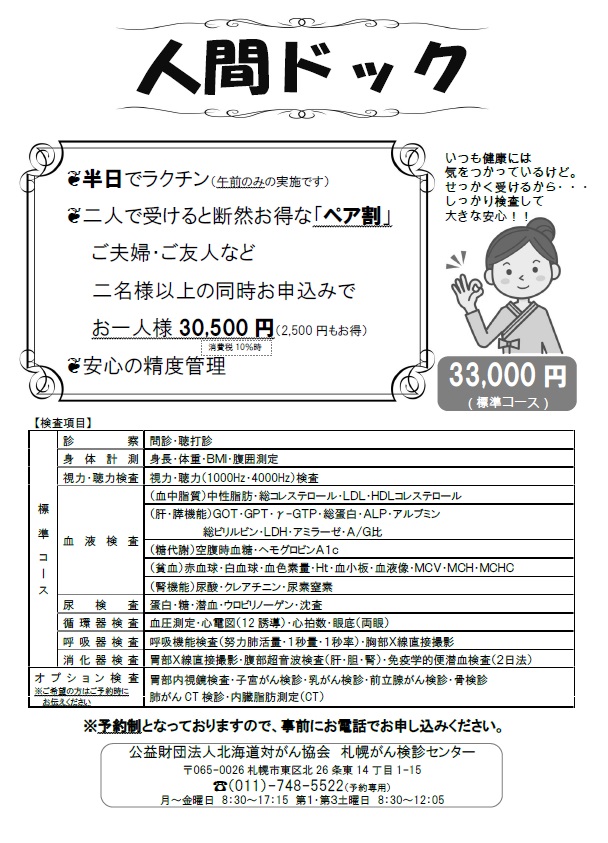 人間ドック
❦半日でラクチン(午前のみの実施です)
❦二人で受けると断然お得な「ペア割」
ご夫婦・ご友人など
二名様以上の同時お申込みで
お一人様 30,500 円(2,500 円もお得)
消費税 10%時
❦安心の精度管理
いつも健康には
気をつかっているけど。
せっかく受けるから・・・
しっかり検査して
大きな安心！！
33,000 円
(標準コース)
【検査項目】
標準コース
診察 問診・聴打診
身体計測 身長・体重・BMI・腹囲測定
視力・聴力検査 視力・聴力(1000Hz・4000Hz)検査
血液検査
(血中脂質)中性脂肪・総コレステロール・LDL・HDLコレステロール
(肝・膵機能)GOT・GPT・γ-GTP・総蛋白・ALP・アルブミン
総ビリルビン・LDH・アミラーゼ・A/G比
(糖代謝)空腹時血糖・ヘモグロビンA1c
(貧血)赤血球・白血球・血色素量・Ht・血小板・血液像・MCV・MCH・MCHC
(腎機能)尿酸・クレアチニン・尿素窒素
尿検査 蛋白・糖・潜血・ウロビリノーゲン・沈査
循環器検査 血圧測定・心電図(12誘導)・心拍数・眼底(両眼)
呼吸器検査 呼吸機能検査(努力肺活量・1秒量・1秒率)・胸部X線直接撮影
消化器検査 胃部X線直接撮影・腹部超音波検査(肝・胆・腎)・免疫学的便潜血検査(2日法)
オプション検査
※ご希望の方はご予約時に
お伝えください
胃部内視鏡検査・子宮がん検診・乳がん検診・前立腺がん検診・骨検診
肺がんCT検診・内臓脂肪測定(CT)
※予約制となっておりますので、事前にお電話でお申し込みください。
公益財団法人北海道対がん協会 札幌がん検診センター
〒065-0026 札幌市東区北 26 条東 14 丁目 1-15
☎(011)-748-5522(予約専用)
月～金曜日 8:30～17:15 第1・第3土曜日 8:30～12:05